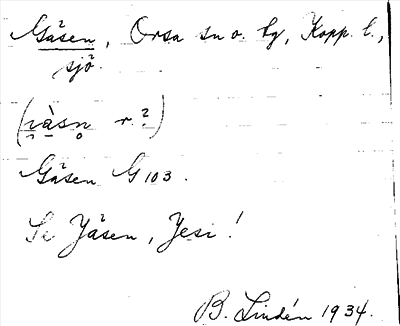 Gåsen, Orsa sn o. tg, Kopp. l.,
sjö.
Gåsen G103.
Se Yåsen, Yesi!
B. Lindén 1934.